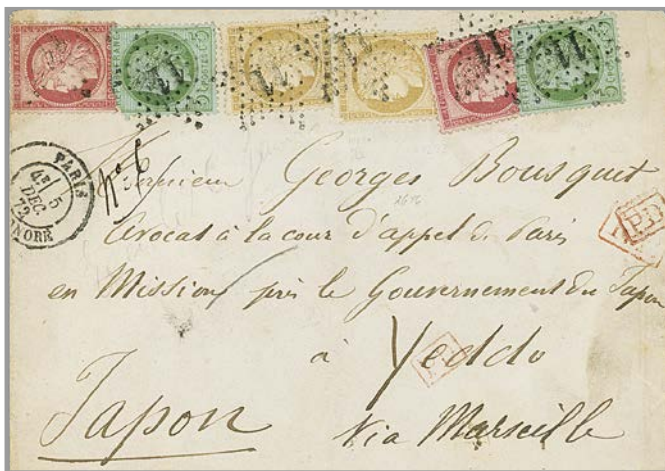 11 11 11 11 11
PARIS
4E
5
DEC.
72
ONORÉ
N° 6
Monsieur Georges Bousquet
Avocat à la cour d'appel de Paris
P.D.
en Mission près le Gouvernement du Japon
à Yeddo
Japon
Via Marseille